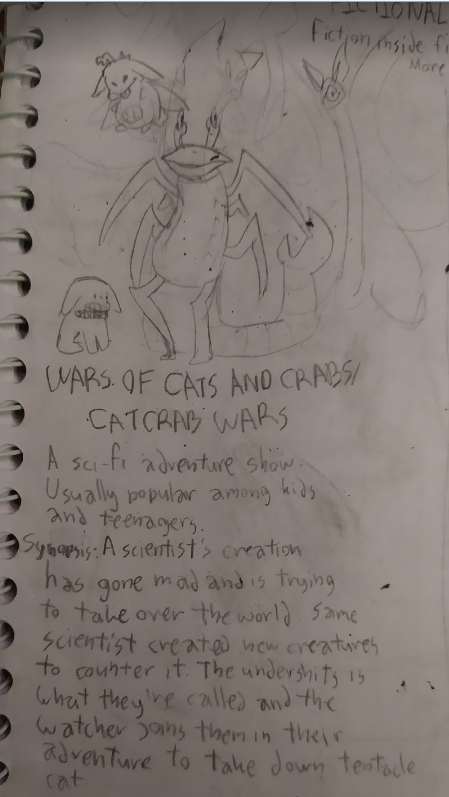 FICTIONAL
Fiction inside fi
More
WARS OF CATS AND CRABS/
CATCRAB WARS
A sci-fi adventure show.
Usually popular among kids
and teenagers.
Synopsis: A scientist's creation
has gone mad and is trying
to take over the world same
scientist created new creatures
to counter it. The undershits is
what they're called and the
watcher joins them in their
adventure to take down tentacle
cat.